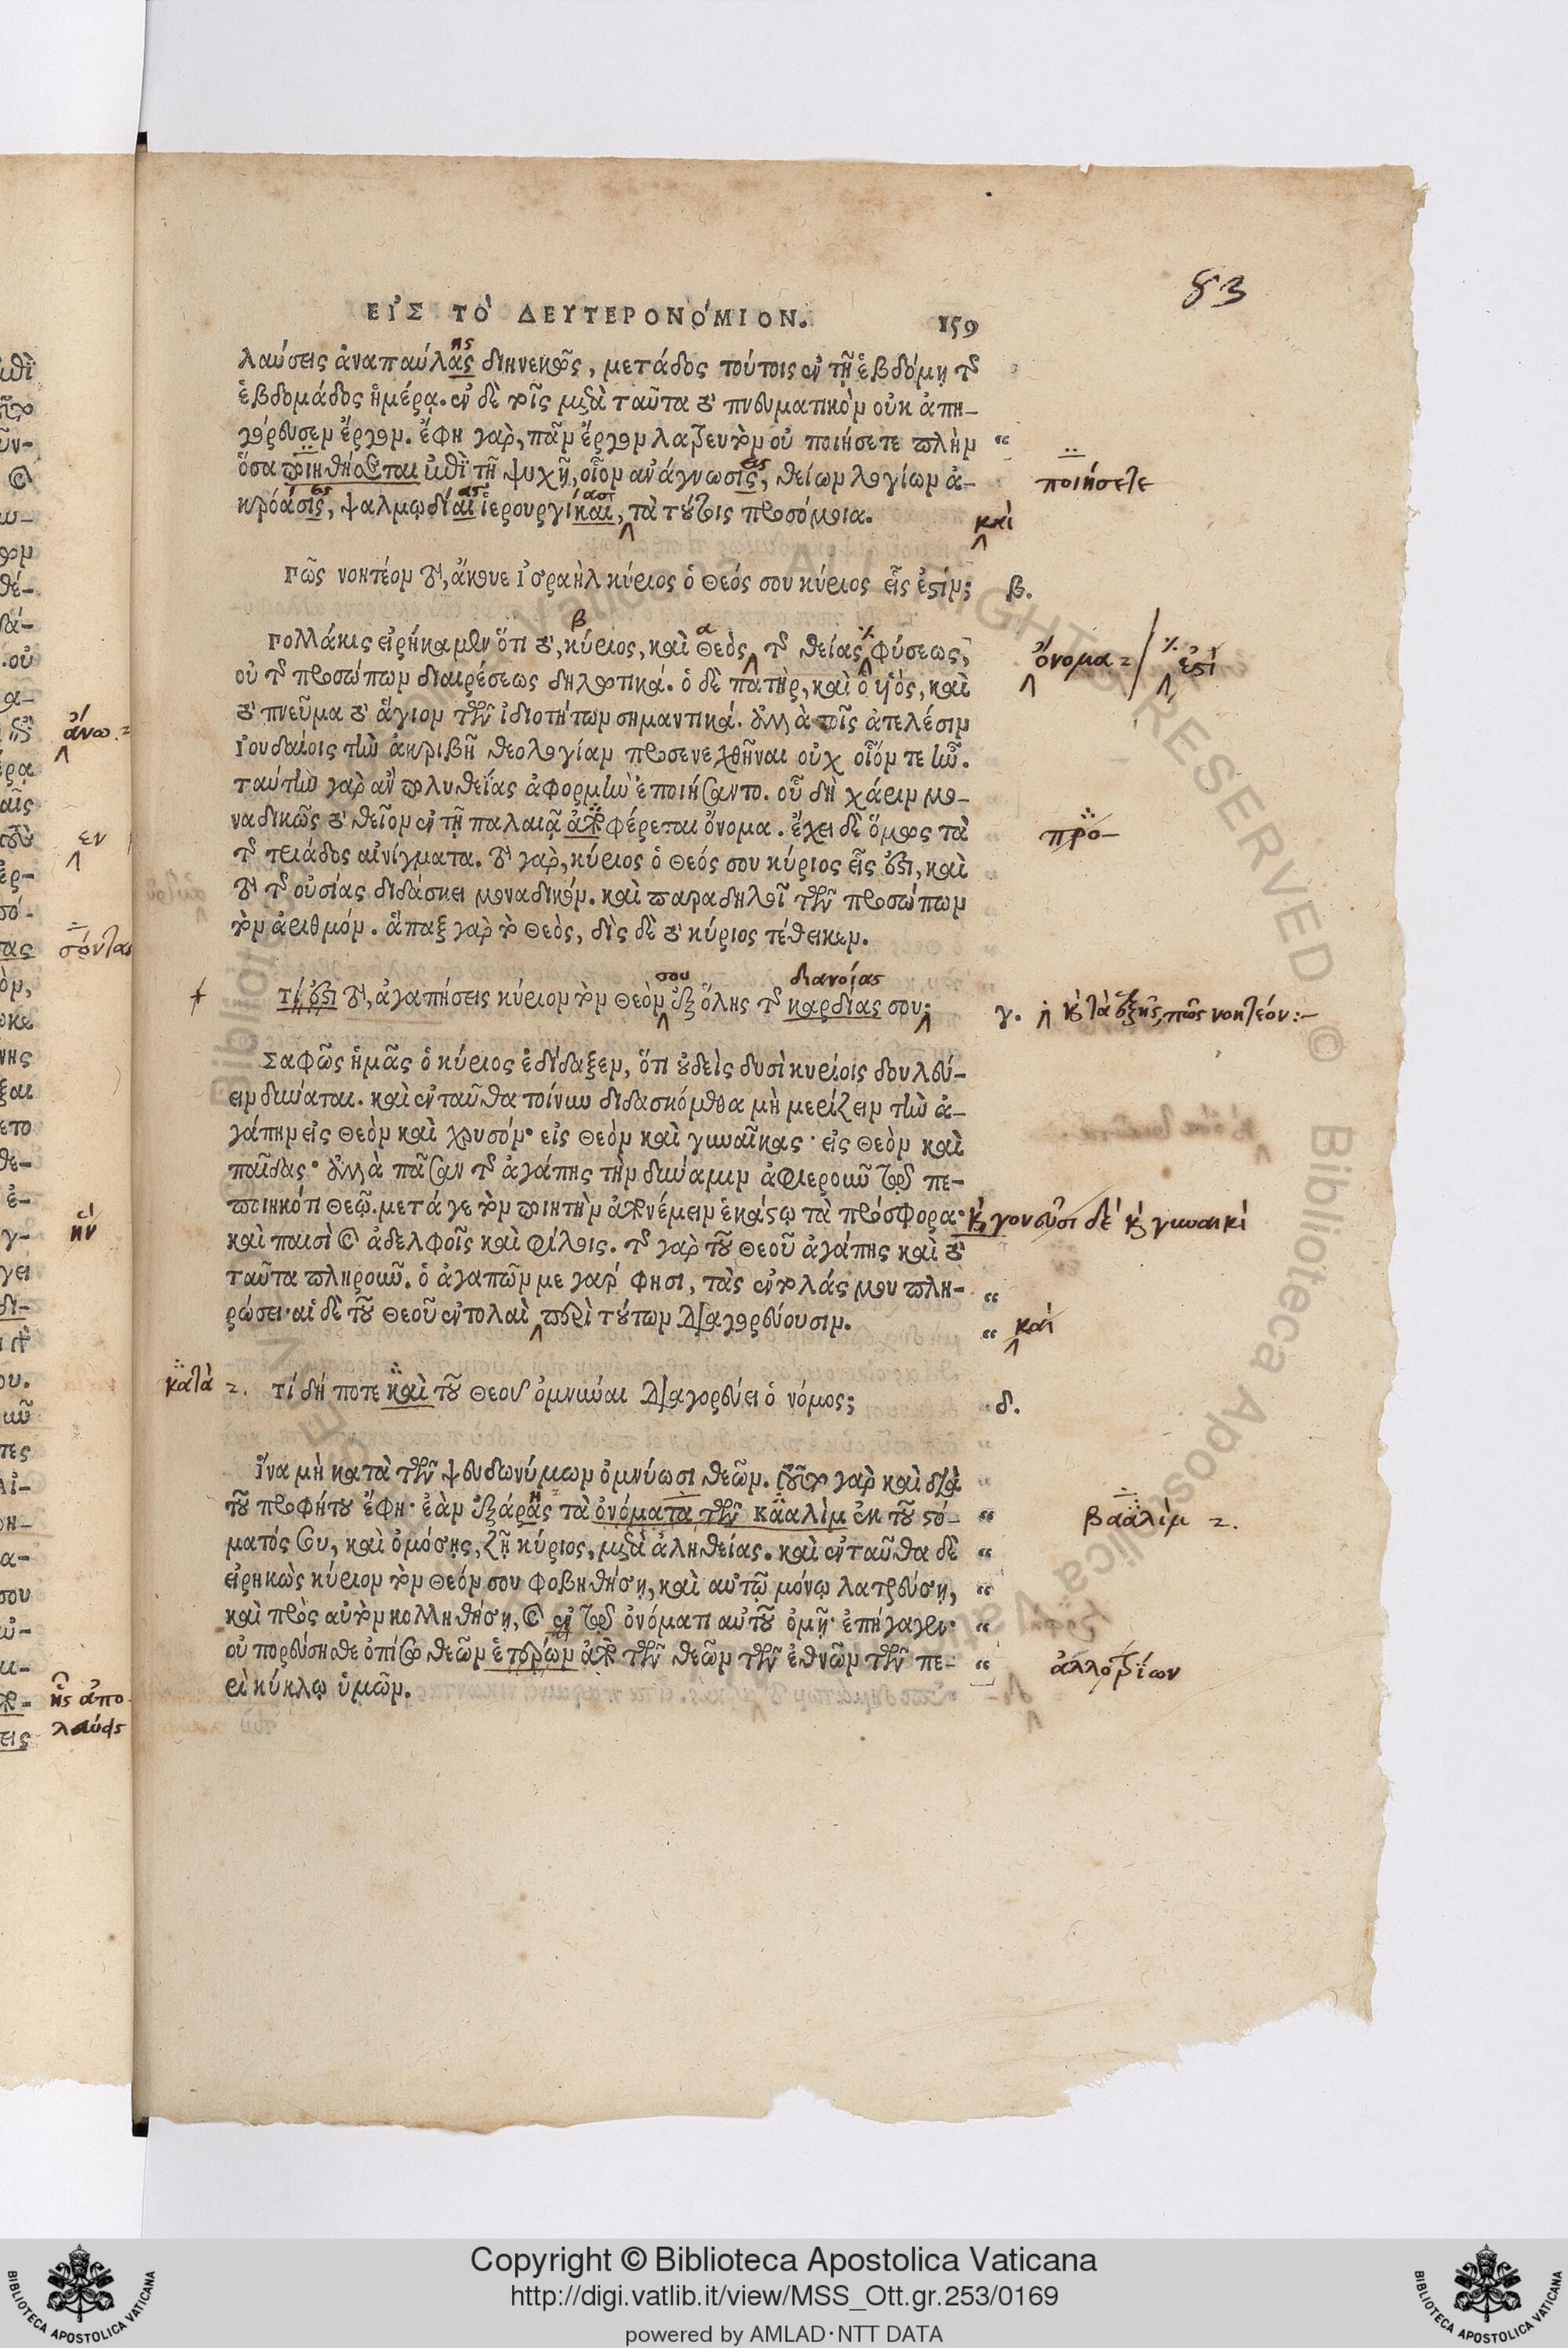 83
ΕΙ᾿Σ ΤΟ᾿ ΔΕΥΤΕΡΟΝΟ΄ΜΙΟΝ. 159
λαύσεις ἀναπαύλας διηνεκῶς, μετάδος τούτοις ἐν τῇ ἑβδόμῃ τῆς
ης
ἑβδομάδος ἡμέρᾳ. ἐν δὲ τοῖς μετὰ ταῦτα τὸ πνευματικὸν οὐκ ἀπη-
γόρευσεν ἔργον. ἔφη γὰρ, πᾶν ἔργον λατρευτὸν οὐ ποιήσετε πλὴν “
ὅσα ποιηθήσεται ἐπὶ τῇ ψυχῇ, οἷον ἀνάγνωσις, θείων λογίων ἀ-
εις
ποιήσετε
κρόασις, ψαλμῳδίαι ἱερουργίκαι, τὰ τούτοις προσόμοια.
καὶ
Πῶς νοητέον τὸ, ἄκουε Ἰσραὴλ κύριος ὁ Θεός σου κύριος εἷς ἐστίν; β.
Πολλάκις εἰρήκαμεν ὅτι τὸ, κύριος, καὶ Θεὸς, τῆς θείας φύσεως,
β α
ὄνομα / ἐστὶ
οὐ τῆς προσώπων διαιρέσεως δηλωτικά. ὁ δὲ πατὴρ, καὶ ὁ υἱός, καὶ
τὸ πνεῦμα τὸ ἅγιον τῶν ἰδιοτήτων σημαντικά. ἀλλὰ τοῖς ἀτελέσιν
Ἰουδαίοις τὴν ἀκριβῆ θεολογίαν προσενεχθῆναι οὐχ οἷόν τε ἦν.
ταύτην γὰρ ἂν πολυθεΐας ἀφορμὴν ἐποιήσαντο. οὗ δὴ χάριν μο-
ναδικῶς τὸ θεῖον ἐν τῇ παλαιᾷ παραφέρεται ὄνομα. ἔχει δὲ ὅμως τὰ
προ-
τῆς τριάδος αἰνίγματα. τὸ γὰρ, κύριος ὁ Θεός σου κύριος εἷς ἐστι, καὶ
τὸ τῆς οὐσίας διδάσκει μοναδικόν. καὶ παραδηλοῖ τῶν προσώπων
τὸν ἀριθμόν. ἅπαξ γὰρ τὸ Θεὸς, δὶς δὲ τὸ κύριος τέθεικεν.
Τί ἐστι τὸ, ἀγαπήσεις κύριον τὸν Θεὸν ἐξ ὅλης τῆς καρδίας σου; γ.
σου διανοίας
καὶ τὰ ἑξῆς, πῶς νοητέον:—
Σαφῶς ἡμᾶς ὁ κύριος ἐδίδαξεν, ὅτι οὐδεὶς δυσὶ κυρίοις δουλεύ-
ειν δύναται. καὶ ἐνταῦθα τοίνυν διδασκόμεθα μὴ μερίζειν τὴν ἀ-
γάπην εἰς Θεὸν καὶ χρυσόν· εἰς Θεὸν καὶ γυναῖκας· εἰς Θεὸν καὶ
παῖδας· ἀλλὰ πᾶσαν τῆς ἀγάπης τὴν δύναμιν ἀφιεροῦν τῷ πε-
ποιηκότι Θεῷ. μετά γε τὸν ποιητὴν ἀπονέμειν ἑκάστῳ τὰ πρόσφορα·
καὶ γονεῦσι δὲ καὶ γυναικὶ
καὶ παισὶ καὶ ἀδελφοῖς καὶ φίλοις. τῆς γὰρ τοῦ Θεοῦ ἀγάπης καὶ τὸ
ταῦτα πληροῦν. ὁ ἀγαπῶν με γάρ φησι, τὰς ἐντολάς μου πλη- “
ρώσει· αἱ δὲ τοῦ Θεοῦ ἐντολαὶ περὶ τούτων διαγορεύουσιν. “
καὶ
κατὰ
Τί δή ποτε καὶ τοῦ Θεοῦ ὀμνύναι διαγορεύει ὁ νόμος; δ.
Ἵνα μὴ κατὰ τῶν ψευδωνύμων ὀμνύωσι θεῶν. τοῦτο γὰρ καὶ διὰ
τοῦ προφήτου ἔφη· ἐὰν ἐξάρᾳς τὰ ὀνόματα τῶν καἀλὶμ ἐκ τοῦ στό- “
βααλὶμ
ματός σου, καὶ ὀμόσῃς, ζῇ κύριος, μετὰ ἀληθείας. καὶ ἐνταῦθα δὲ “
εἰρηκὼς κύριον τὸν Θεόν σου φοβηθήσῃ, καὶ αὐτῷ μόνῳ λατρεύσῃ, “
καὶ πρὸς αὐτὸν κολληθήσῃ, καὶ ἐν τῷ ὀνόματι αὐτοῦ ὀμῇ· ἐπήγαγεν· “
οὐ πορεύσησθε ὀπίσω θεῶν ἑτέρων ἀπὸ τῶν θεῶν τῶν ἐθνῶν τῶν πε- “
ἀλλοτρίων
ρὶ κύκλῳ ὑμῶν.
Copyright © Biblioteca Apostolica Vaticana
http://digi.vatlib.it/view/MSS_Ott.gr.253/0169
powered by AMLAD·NTT DATA